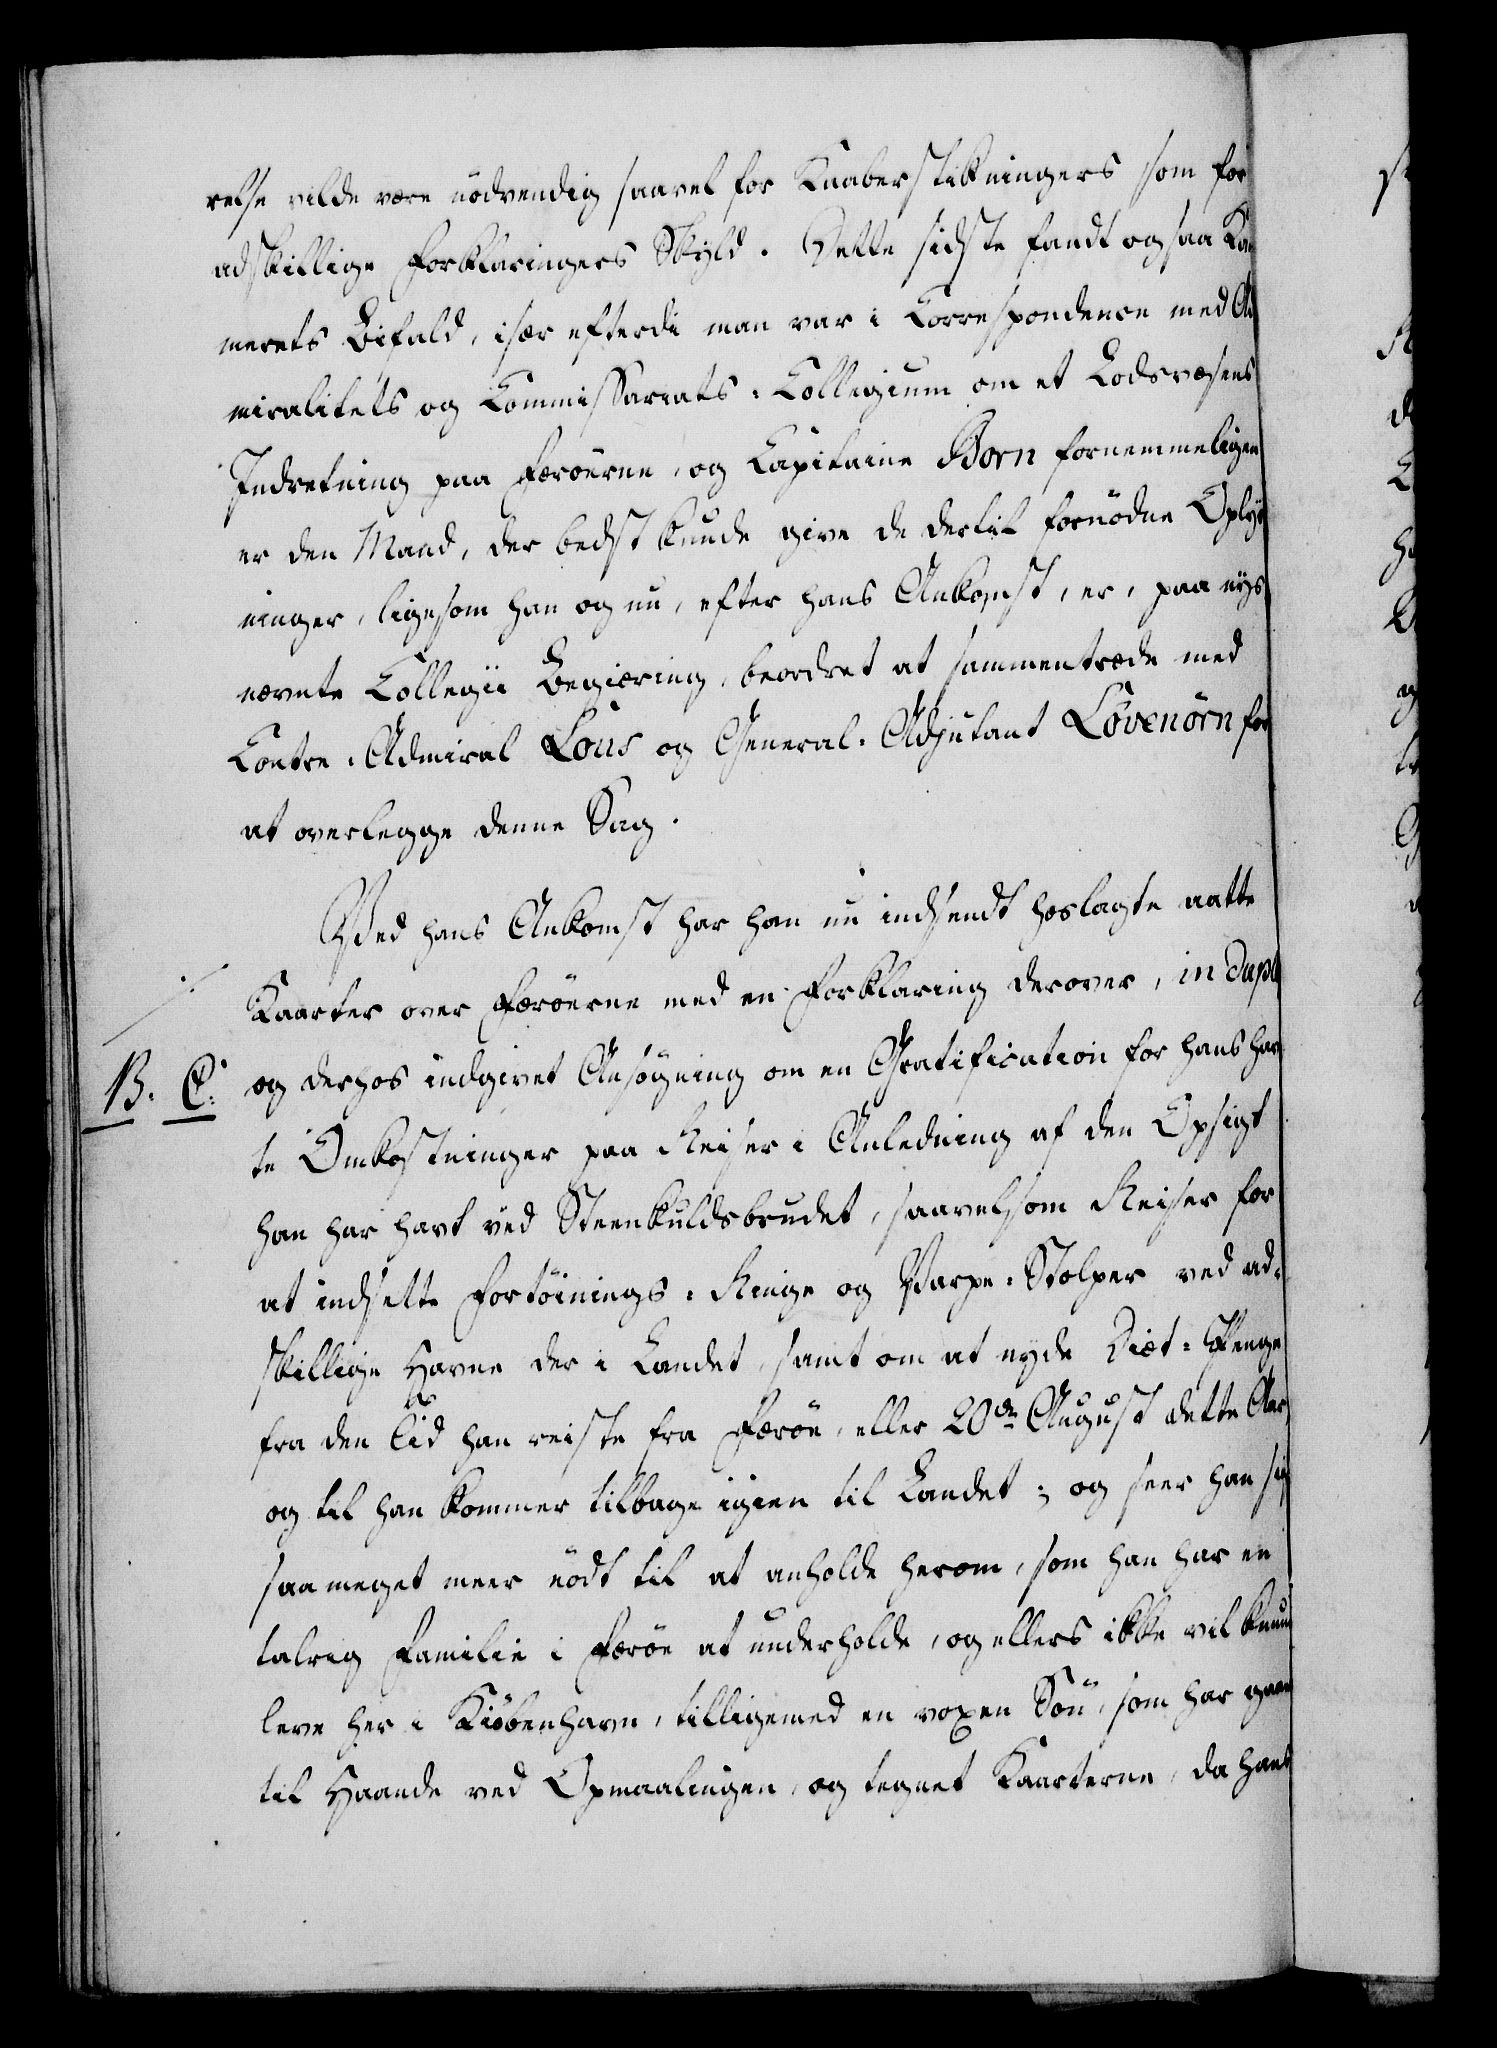 relse vilde være nödvendig saavel for Kaaberstikningers som for
adskillige Forklaringers Skyld. Dette sidste fandt ogsaa Kam
merets Bifald, især efterdi man var i Correspondence med Ad
miralitets og Commissariats-Collegium om et Lodsvæsens
Indretning paa Færöerne, og Capitaine Born fornemmeligen
er den Mand, der bedst kunde give de dertil fornödne Oplys
ninger, ligesom han og nu, efter hans Ankomst, er, paa nys
nævnte Collegii Begiæring, beordret at sammentræde med
Contre-Admiral Lous og General-Adjutant Lövenörn for
at overlegge denne Sag.
Ved hans Ankomst har han nu indsendt hoslagte aatte
Kaarter over Færöerne med en Forklaring derover, in duplo
B. C. og derhos indgivet Ansögning om en Gratification for hans hav
te Omkostninger paa Reiser i Anledning af den Opsigt
han har havt ved Steenkulsbrudet, saavelsom Reiser for
at indsette Fortöinings-Ringe og Varpe-Stolper ved ad-
skillige Havne der i Landet, samt om at nyde Diæt-Penge
fra den Tid han reiste fra Færöe, eller 20de August dette Aar
og til han kommer tilbage igien til Landet; og seer han sig
saa meget meer nödt til at anholde herom, som han har en
talrig Familie i Færöe at underholde, og ellers ikke vil kunne
leve her i Kiöbenhavn, tilligemed en voxen Sön, som har gaaet
til Haande ved Opmaalingen, og tegnet Kaarterne, da hans